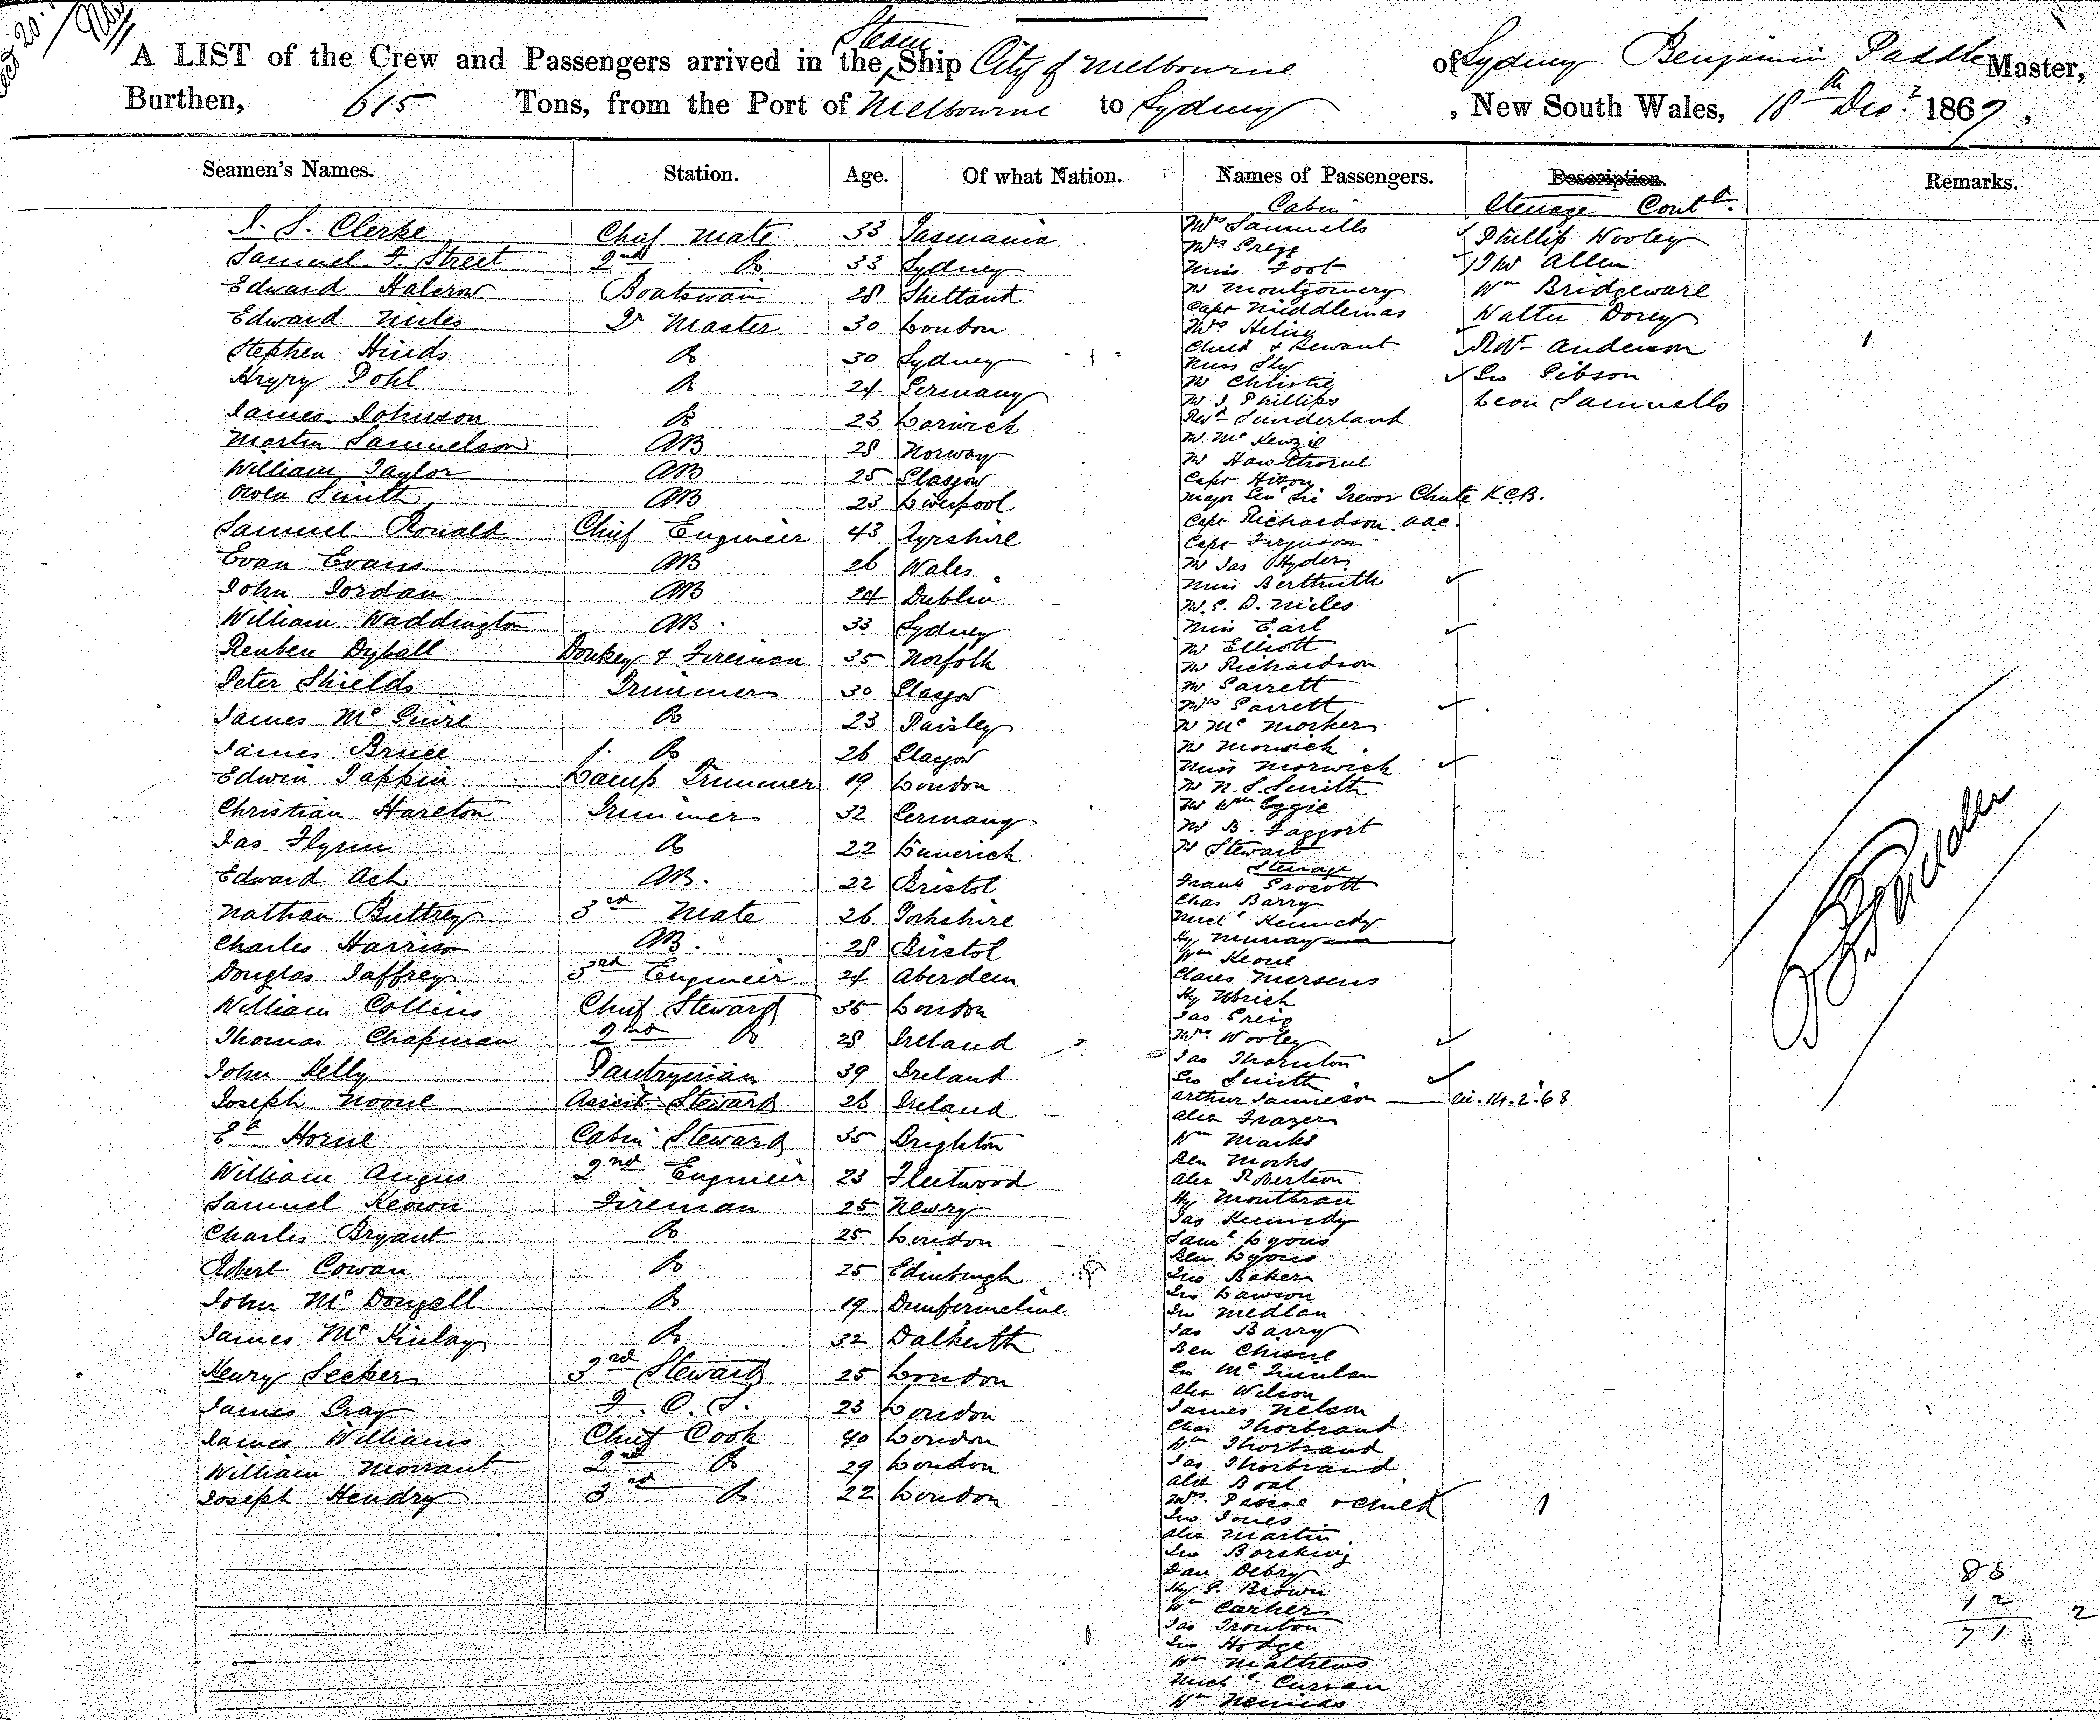 A LIST of the Crew and Passengers arrived in the Steam Ship City of Melbourne of Sydney Benjamin Paddle Master,
Burthen, 615 Tons, from the Port of Melbourne to Sydney, New South Wales, 18th Decr 1867.
Seamen's Names. Station. Age. Of what Nation. Names of Passengers. Description. Remarks.
Cabin Steerage Contd.
Clerke Chief Mate 33 Tasmania
Samuel F. Street 2nd Do 33 Sydney
Edward Halcrow Boatswain 28 Shetland
Edward Miles Qr Master 30 London
Stephen Hinds Do 30 Sydney
Pohl Do 24 Germany
James Johnson Do 23 Harwich
Martin Samuelson AB 28 Norway
William Taylor AB 25 Glasgow
Smith AB 23 Liverpool
Samuel Ronald Chief Engineer 43 Ayrshire
Evan Evans AB 26 Wales
John Jordan AB 24 Dublin
William Waddington AB 33 Sydney
Reuben Dyball Donkey & Fireman 35 Norfolk
Peter Shields Trimmer 30 Glasgow
James McGuire Do 23 Paisley
James Bruce Do 26 Glasgow
Edwin Tappin Lamp Trimmer 19 London
Christian Harelton Trimmer 32 Germany
Jas Flynn Do 22 Limerick
Edward Ach AB. 22 Bristol
Nathan Buttrey 3rd Mate 26 Yorkshire
Charles Harris AB. 28 Bristol
Douglas Jaffrey 3rd Engineer 24 Aberdeen
William Collins Chief Steward 35 London
Thomas Chapman 2nd Do 28 Ireland
John Kelly Pantryman 39 Ireland
Joseph Noone Assist Steward 26 Ireland
Ed Horne Cabin Steward 35 Brighton
William Angus 2nd Engineer 23 Fleetwood
Samuel Keown Fireman 25 Newry
Charles Bryant Do 25 London
Robert Cowan Do 25 Edinburgh
John McDougall Do 19 Dunfermeline
James McKinlay Do 32 Dalkeith
Henry Seeker 3rd Steward 25 London
James Gray F. C. S. 23 London
James Williams Chief Cook 40 London
William Morrant 2nd Do 29 London
Joseph Hendry 3rd Do 22 London
Mrs Samuells
Mrs Greig
Miss Foot
Mr Montgomery
Capt Middlemas
Mrs
Child & Servant
Miss Sly
Mr Christie
Mr J. Phillips
Revd Sunderland
Mr McKenzie
Mr Hawthorne
Capt Hixon
Major Genl Sir Trevor Chute K.C.B.
Capt Richardson aac.
Capt Ferguson
Mr Jas Hyder
Miss
Mr S. D. Miles
Miss Earl
Mr Elliott
Mr Richardson
Mr Garrett
Mrs Garrett
Mr
Mr Morwick
Miss Morwick
Mr N. S. Smith
Mr Wm
Mr B.
Mr Stewart
Steerage
Frank Procott
Chas Barry
Michl Kennedy
Hy Murray
Wm Keone
Claus Mersens
Hy Ubrich
Jas Greig
Mrs Wooley
Jas Thornton
Geo Smith
Arthur Jamieson 14.2.68
Alex Frazer
Wm Marks
Ben Marks
Alex Robertson
Hy
Jas Kennedy
Saml Lyons
Ben Lyons
Geo Baker
Geo Lawson
Geo Medlan
Jas Barry
Ben
Geo
Alex Wilson
James Nelson
Chas Thorbrand
Wm Thorbrand
Jas Thorbrand
Alex Boal
Mrs & Child 1
Geo Jones
Alex Martin
Geo
Dan
Hy S. Brown
Wm Carker
Jas Trouton
Geo Hodge
Wm Mathews
Michl Curran
Wm
Phillip Wooley
Jno Allen
Wm Bridgeware
Walter Dorey
Robt Anderson
Geo Gibson
Leon Samuells
B Paddle